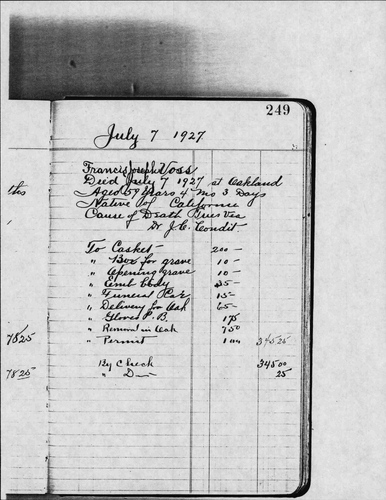 249
July 7 1927
Francis Joseph Voss
Died July 7 1927 at Oakland
Aged 59 Years 4 Mo 3 Days
Native of California
Cause of Death
Dr J. C. Condit
this
To Casket 200 —
" Box for grave 10 —
" Opening grave 10 —
" Emb body 35 —
" Funeral Car 15 —
" Delivery for Oak 65 —
" Gloves P. B. 1 75
" Removal in Oak 7 50
7825 " Permit 1 00 345 25
By Check 345 00
7825 " 25